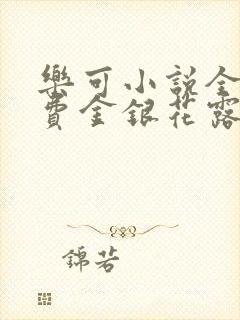 樂可小說全
費金銀花露
錦若